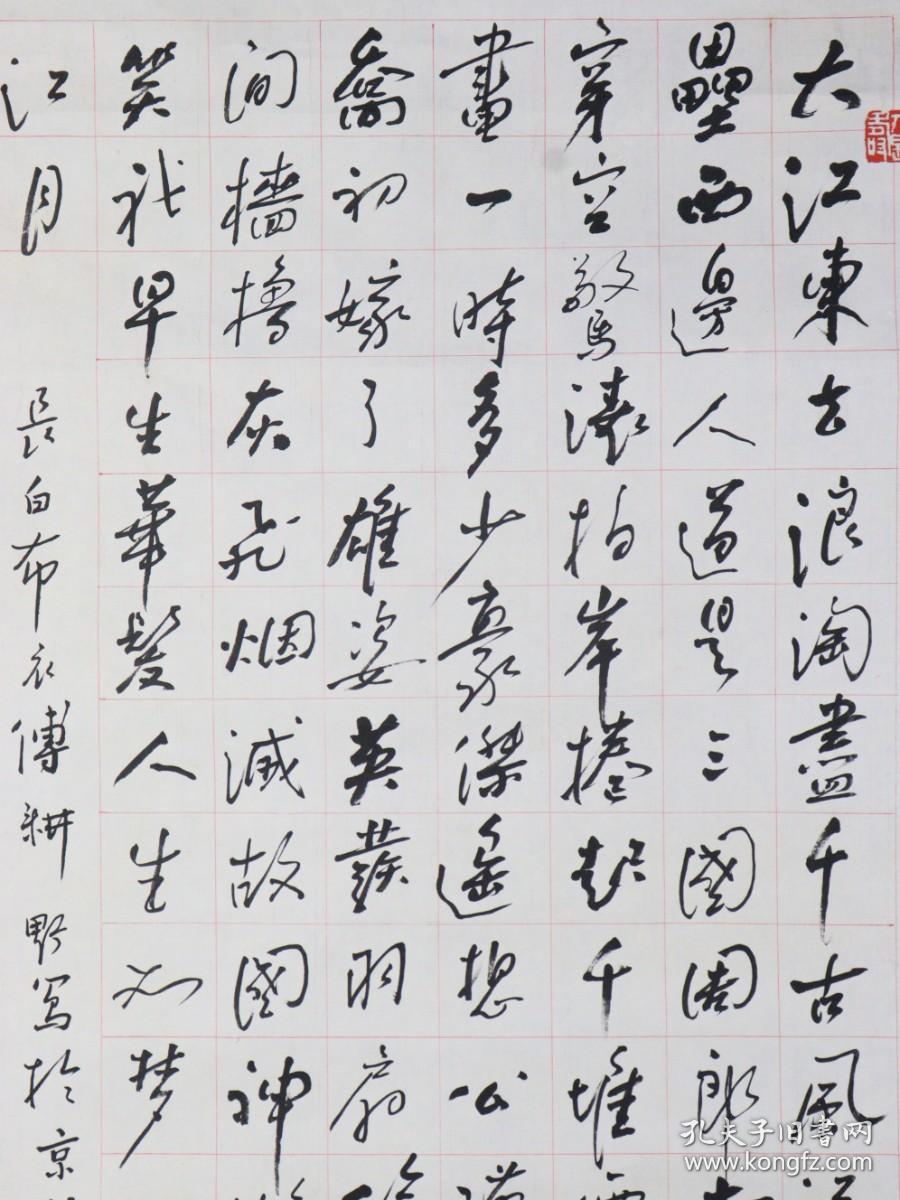 大江東去浪淘盡千古風
壘西邊人道是三國周郎
穿空驚濤拍岸捲起千堆
畫一時多少豪傑遙想公
喬初嫁了雄姿英發羽扇
間檣櫓灰飛烟滅故國神
笑我早生華髮人生如梦
江月
長白布衣傅耕野寫於京
孔夫子旧書网
kongfz.com